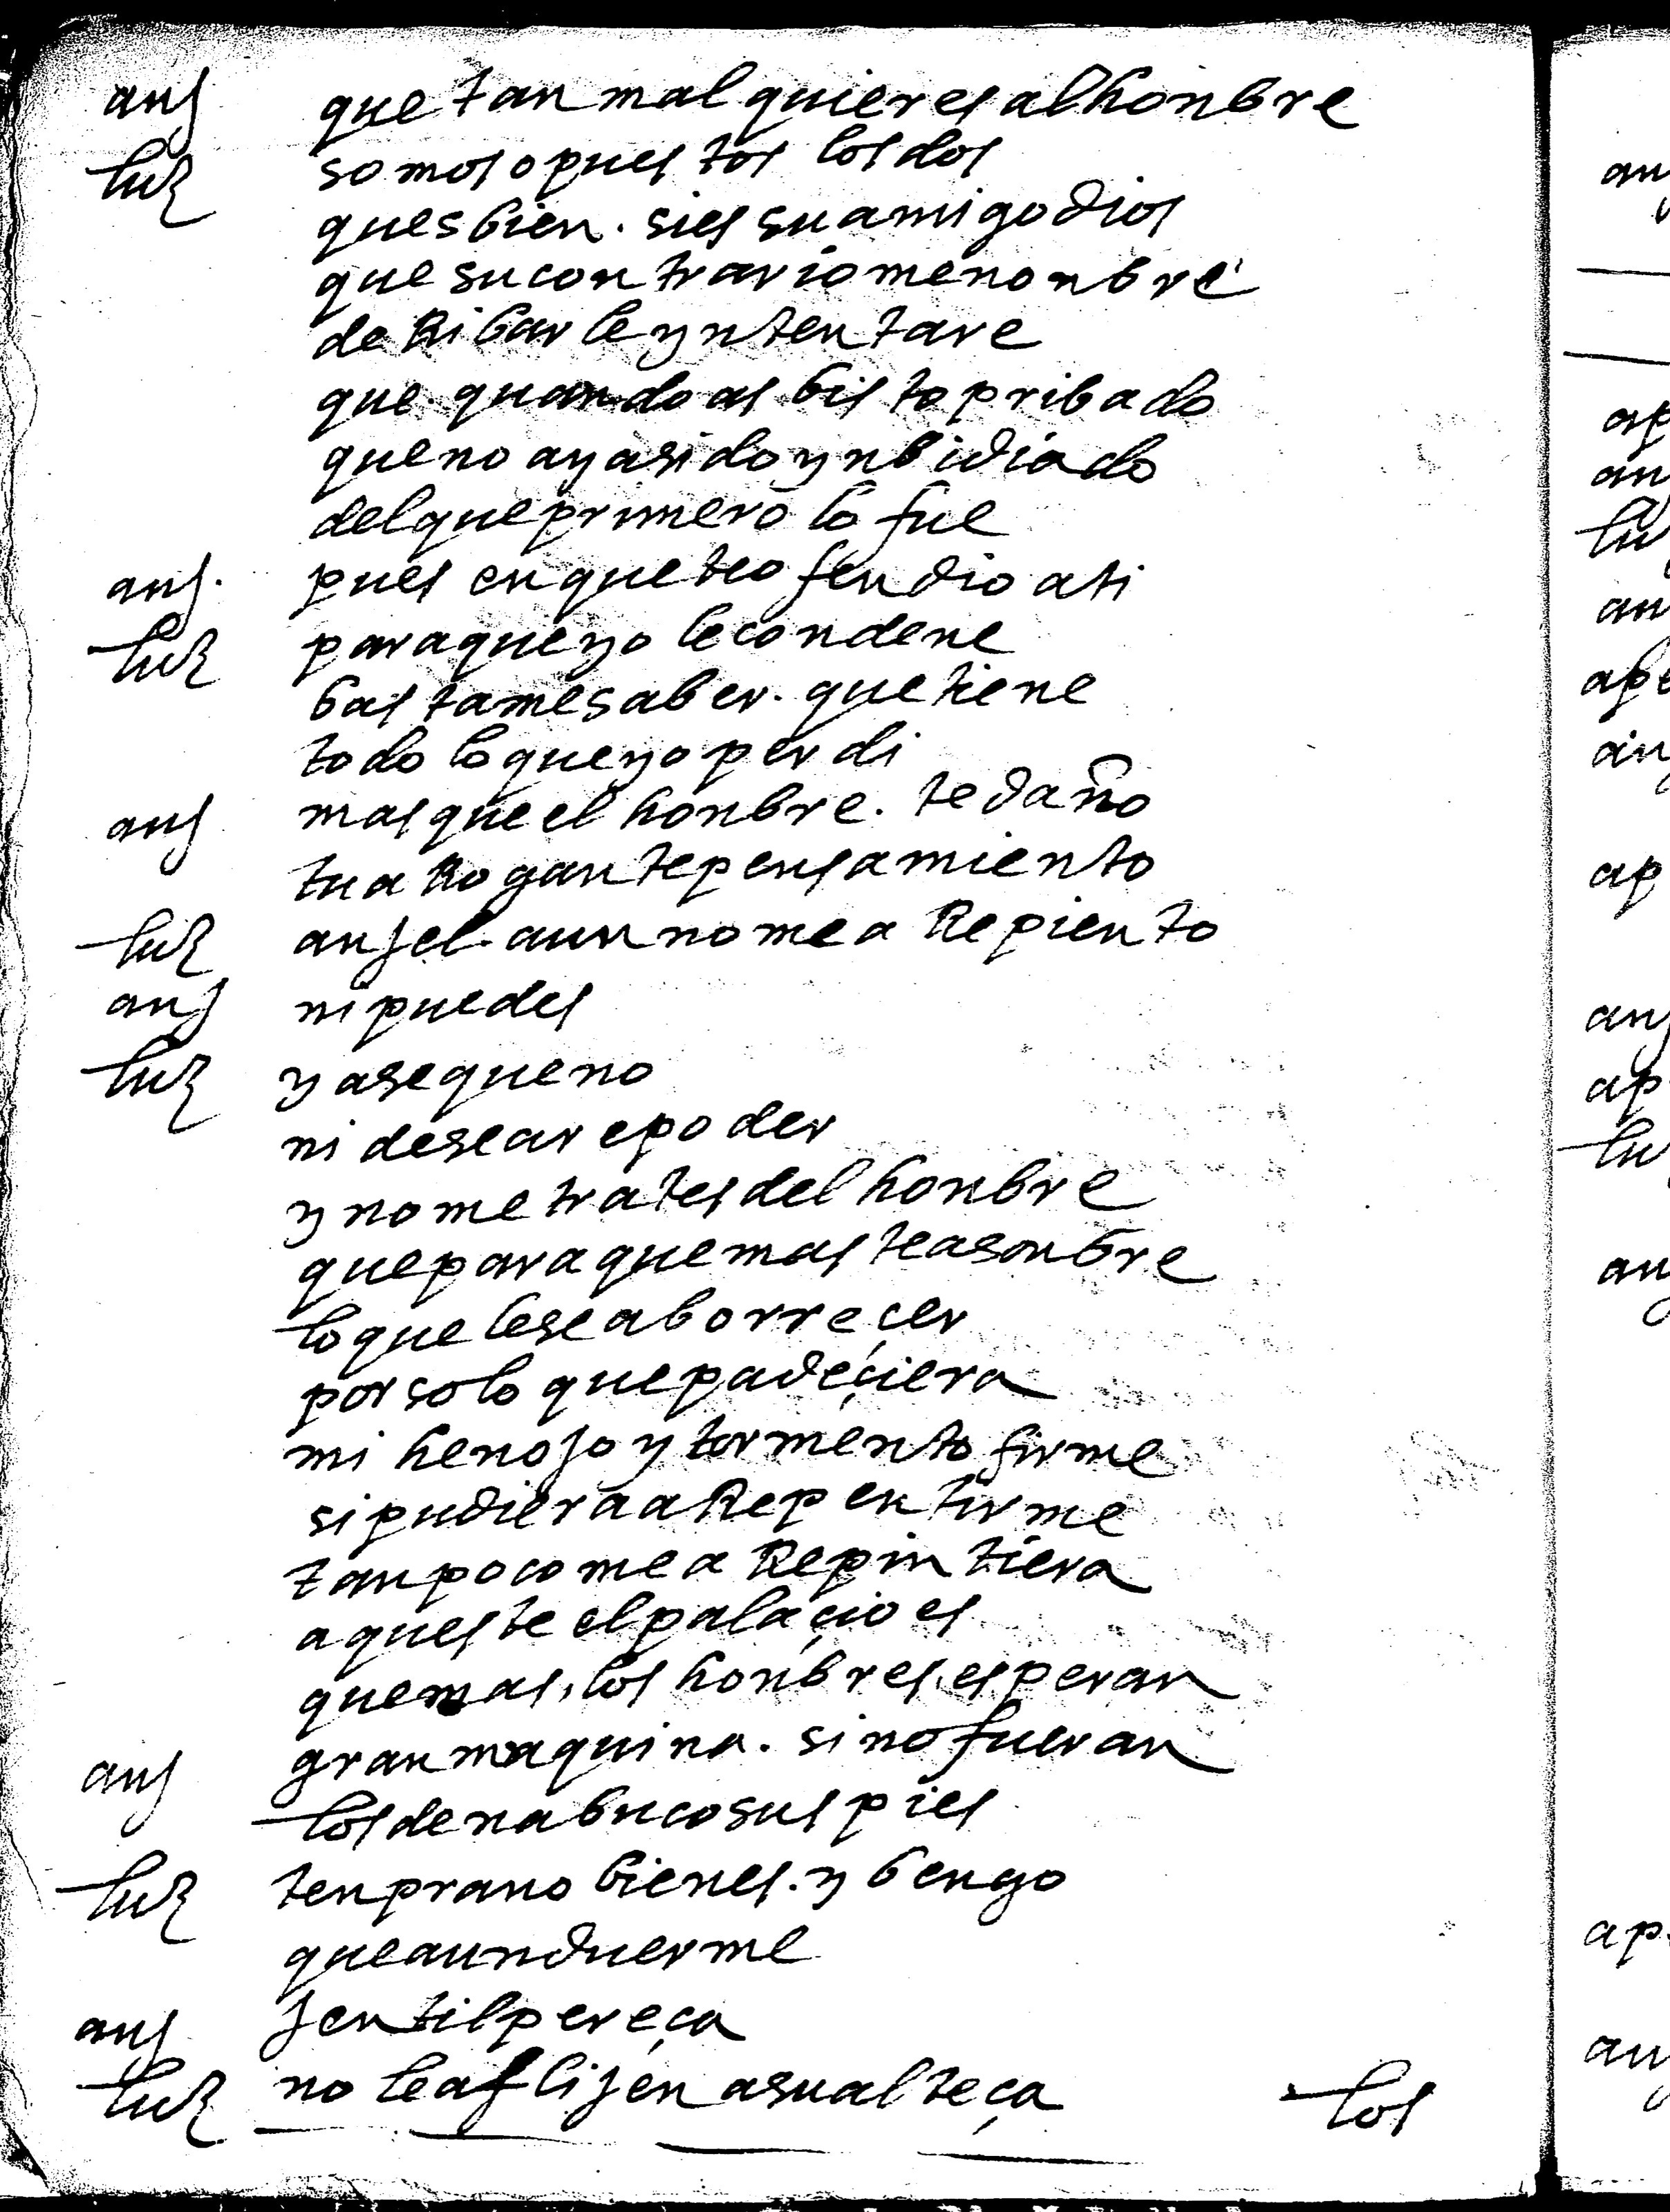 anj que tan mal quieres al honbre
luz somos opuestos los dos
ques bien. si es su amigo dios
que su contrario me nonbre
deRibarle yntentare
que quando as bisto pribado
que no aya sido ynbidiado
del que primero lo fue
anj. pues en que te ofendio a ti
luz para que yo le condene
bastame saber. que tiene
todo lo que yo perdi
anj mas que el honbre. te daño
tu aRogante pensamiento
luz anjel. aun no me aRepiento
anj ni puedes
luz ya se que no
ni deseare poder
y no me trates del honbre
que para que mas te asonbre
lo que le se aborreçer
por solo que padeçiera
mi henojo y tormento firme
si pudiera aRepentirme
tanpoco me aRepintiera
aqueste el palaçio es
que mas, los honbres, esperan
anj gran maquina. si no fueran
los de nabuco sus pies
luz tenprano bienes. y bengo
que aun duerme
anj jentil pereça
luz no le aflijen a su alteça
los
an
ap
an
lu
an
ape
an
ap
anj
ap
lu
an
ap.
an